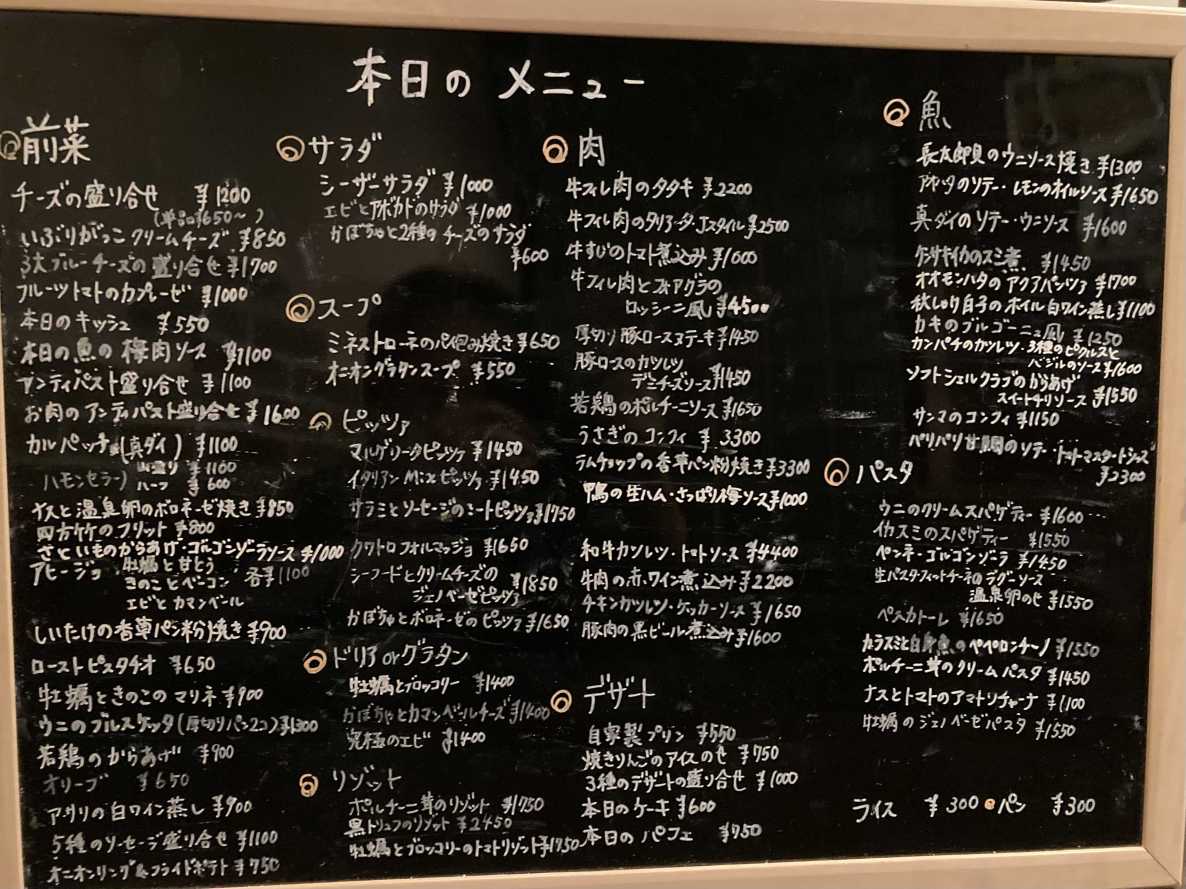 本日の メニュー
前菜
チーズの盛り合せ ¥1200
(単品¥650〜)
いぶりがっこクリームチーズ ¥850
3大ブルーチーズの盛り合せ ¥1700
フルーツトマトのカプレーゼ ¥1000
本日のキッシュ ¥550
本日の魚の梅肉ソース ¥1100
アンティパスト盛り合せ ¥1100
お肉のアンティパスト盛り合せ ¥1600
カルパッチョ(真ダイ) ¥1100
ハモンセラーノ 山盛り ¥1100
ハーフ ¥600
ナスと温泉卵のボロネーゼ焼き ¥850
四方竹のフリット ¥800
さといものからあげ・ゴルゴンゾーラソース ¥1000
アヒージョ 牡蠣と甘とう
きのことベーコン 各¥1100
エビとカマンベール
しいたけの香草パン粉焼き ¥900
ローストピスタチオ ¥650
牡蠣ときのこのマリネ ¥900
ウニのブルスケッタ(厚切りパン2コ) ¥1300
若鶏のからあげ ¥900
オリーブ ¥650
アサリの白ワイン蒸し ¥900
5種のソーセージ盛り合せ ¥1100
オニオンリング&フライドポテト ¥750
サラダ
シーザーサラダ ¥1000
エビとアボカドのサラダ ¥1000
かぼちゃと2種のチーズのサラダ
¥600
スープ
ミネストローネのパイ包み焼き ¥650
オニオングラタンスープ ¥550
ピッツァ
マルゲリータピッツァ ¥1450
イタリアンMixピッツァ ¥1450
サラミとソーセージのミートピッツァ ¥1750
クワトロフォルマッジョ ¥1650
シーフードとクリームチーズの
ジェノベーゼピッツァ ¥1850
かぼちゃとボロネーゼのピッツァ ¥1650
ドリアorグラタン
牡蠣とブロッコリー ¥1400
かぼちゃとカマンベールチーズ ¥1400
究極のエビ ¥1400
リゾット
ポルチーニ茸のリゾット ¥1750
黒トリュフのリゾット ¥2450
牡蠣とブロッコリーのトマトリゾット ¥1750
肉
牛フィレ肉のタタキ ¥2200
牛フィレ肉のタリアータJスタイル ¥2500
牛すじのトマト煮込み ¥1000
牛フィレ肉とフォアグラの
ロッシーニ風 ¥4500
厚切り豚ロースステーキ ¥1450
豚ロースのカツレツ
デミチーズソース ¥1450
若鶏のポルチーニソース ¥1650
うさぎのコンフィ ¥3300
ラムチョップの香草パン粉焼き ¥3300
鴨の生ハム・さっぱり梅ソース ¥1000
和牛カツレツ・トマトソース ¥4400
牛肉の赤ワイン煮込み ¥2200
チキンカツレツ・ケッカーソース ¥1650
豚肉の黒ビール煮込み ¥1600
デザート
自家製プリン ¥550
焼きりんごのアイスのせ ¥750
3種のデザートの盛り合せ ¥1000
本日のケーキ ¥600
本日のパフェ ¥950
魚
長太郎貝のウニソース焼き ¥1300
のソテー・レモンのオイルソース ¥1650
真ダイのソテー・ウニソース ¥1600
ケンサキイカのスミ煮 ¥1450
オオモンハタのアクアパッツァ ¥1700
秋しゃり白子のホイル白ワイン蒸し ¥1100
カキのブルゴーニュ風 ¥1250
カンパチのカツレツ・3種のピクルスと
バジルのソース ¥1600
ソフトシェルクラブのからあげ
スイートチリソース ¥1550
サンマのコンフィ ¥1150
パリパリ甘鯛のソテートマトマスタードソース
¥2300
パスタ
ウニのクリームスパゲティー ¥1600
イカスミのスパゲティー ¥1550
ペンネ・ゴルゴンゾーラ ¥1450
生パスタ・フィットチーネのラグーソース
温泉卵のせ ¥1550
ペスカトーレ ¥1650
カラスミと白身魚のペペロンチーノ ¥1550
ポルチーニ茸のクリームパスタ ¥1450
ナスとトマトのアマトリチャーナ ¥1100
牡蠣のジェノベーゼパスタ ¥1550
ライス ¥300 パン ¥300